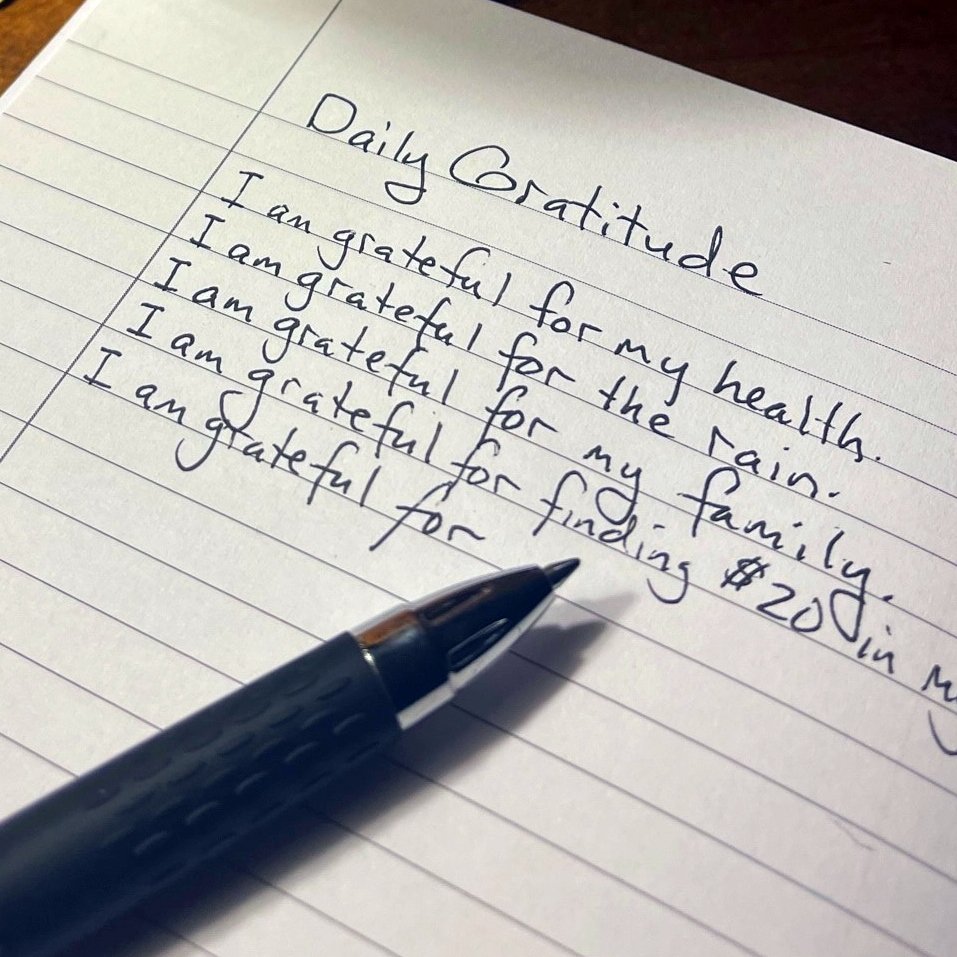 Daily Gratitude
I am grateful for my health.
I am grateful for the rain.
I am grateful for my family.
I am grateful for finding $20 in my
I am grateful for